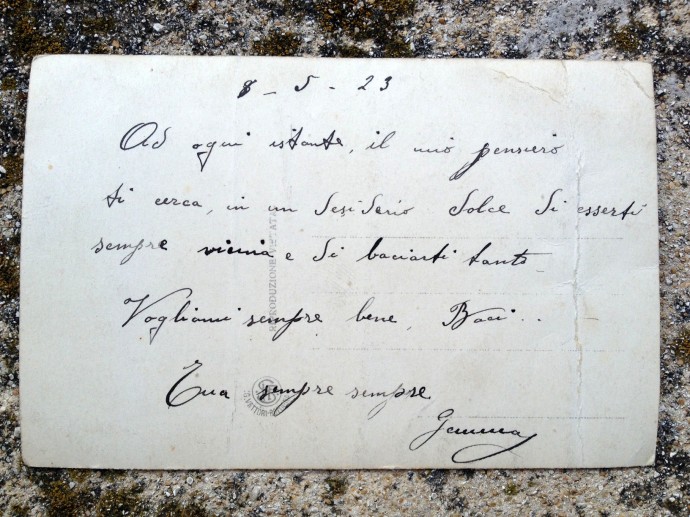 8 - 5 - 23
Ad ogni istante, il mio pensiero
ti cerca, in un desiderio dolce di esserti
sempre vicina e di baciarti tanto
Vogliami sempre bene, Baci..
Tua sempre sempre
Gemma
RIPRODUZIONE VIETATA